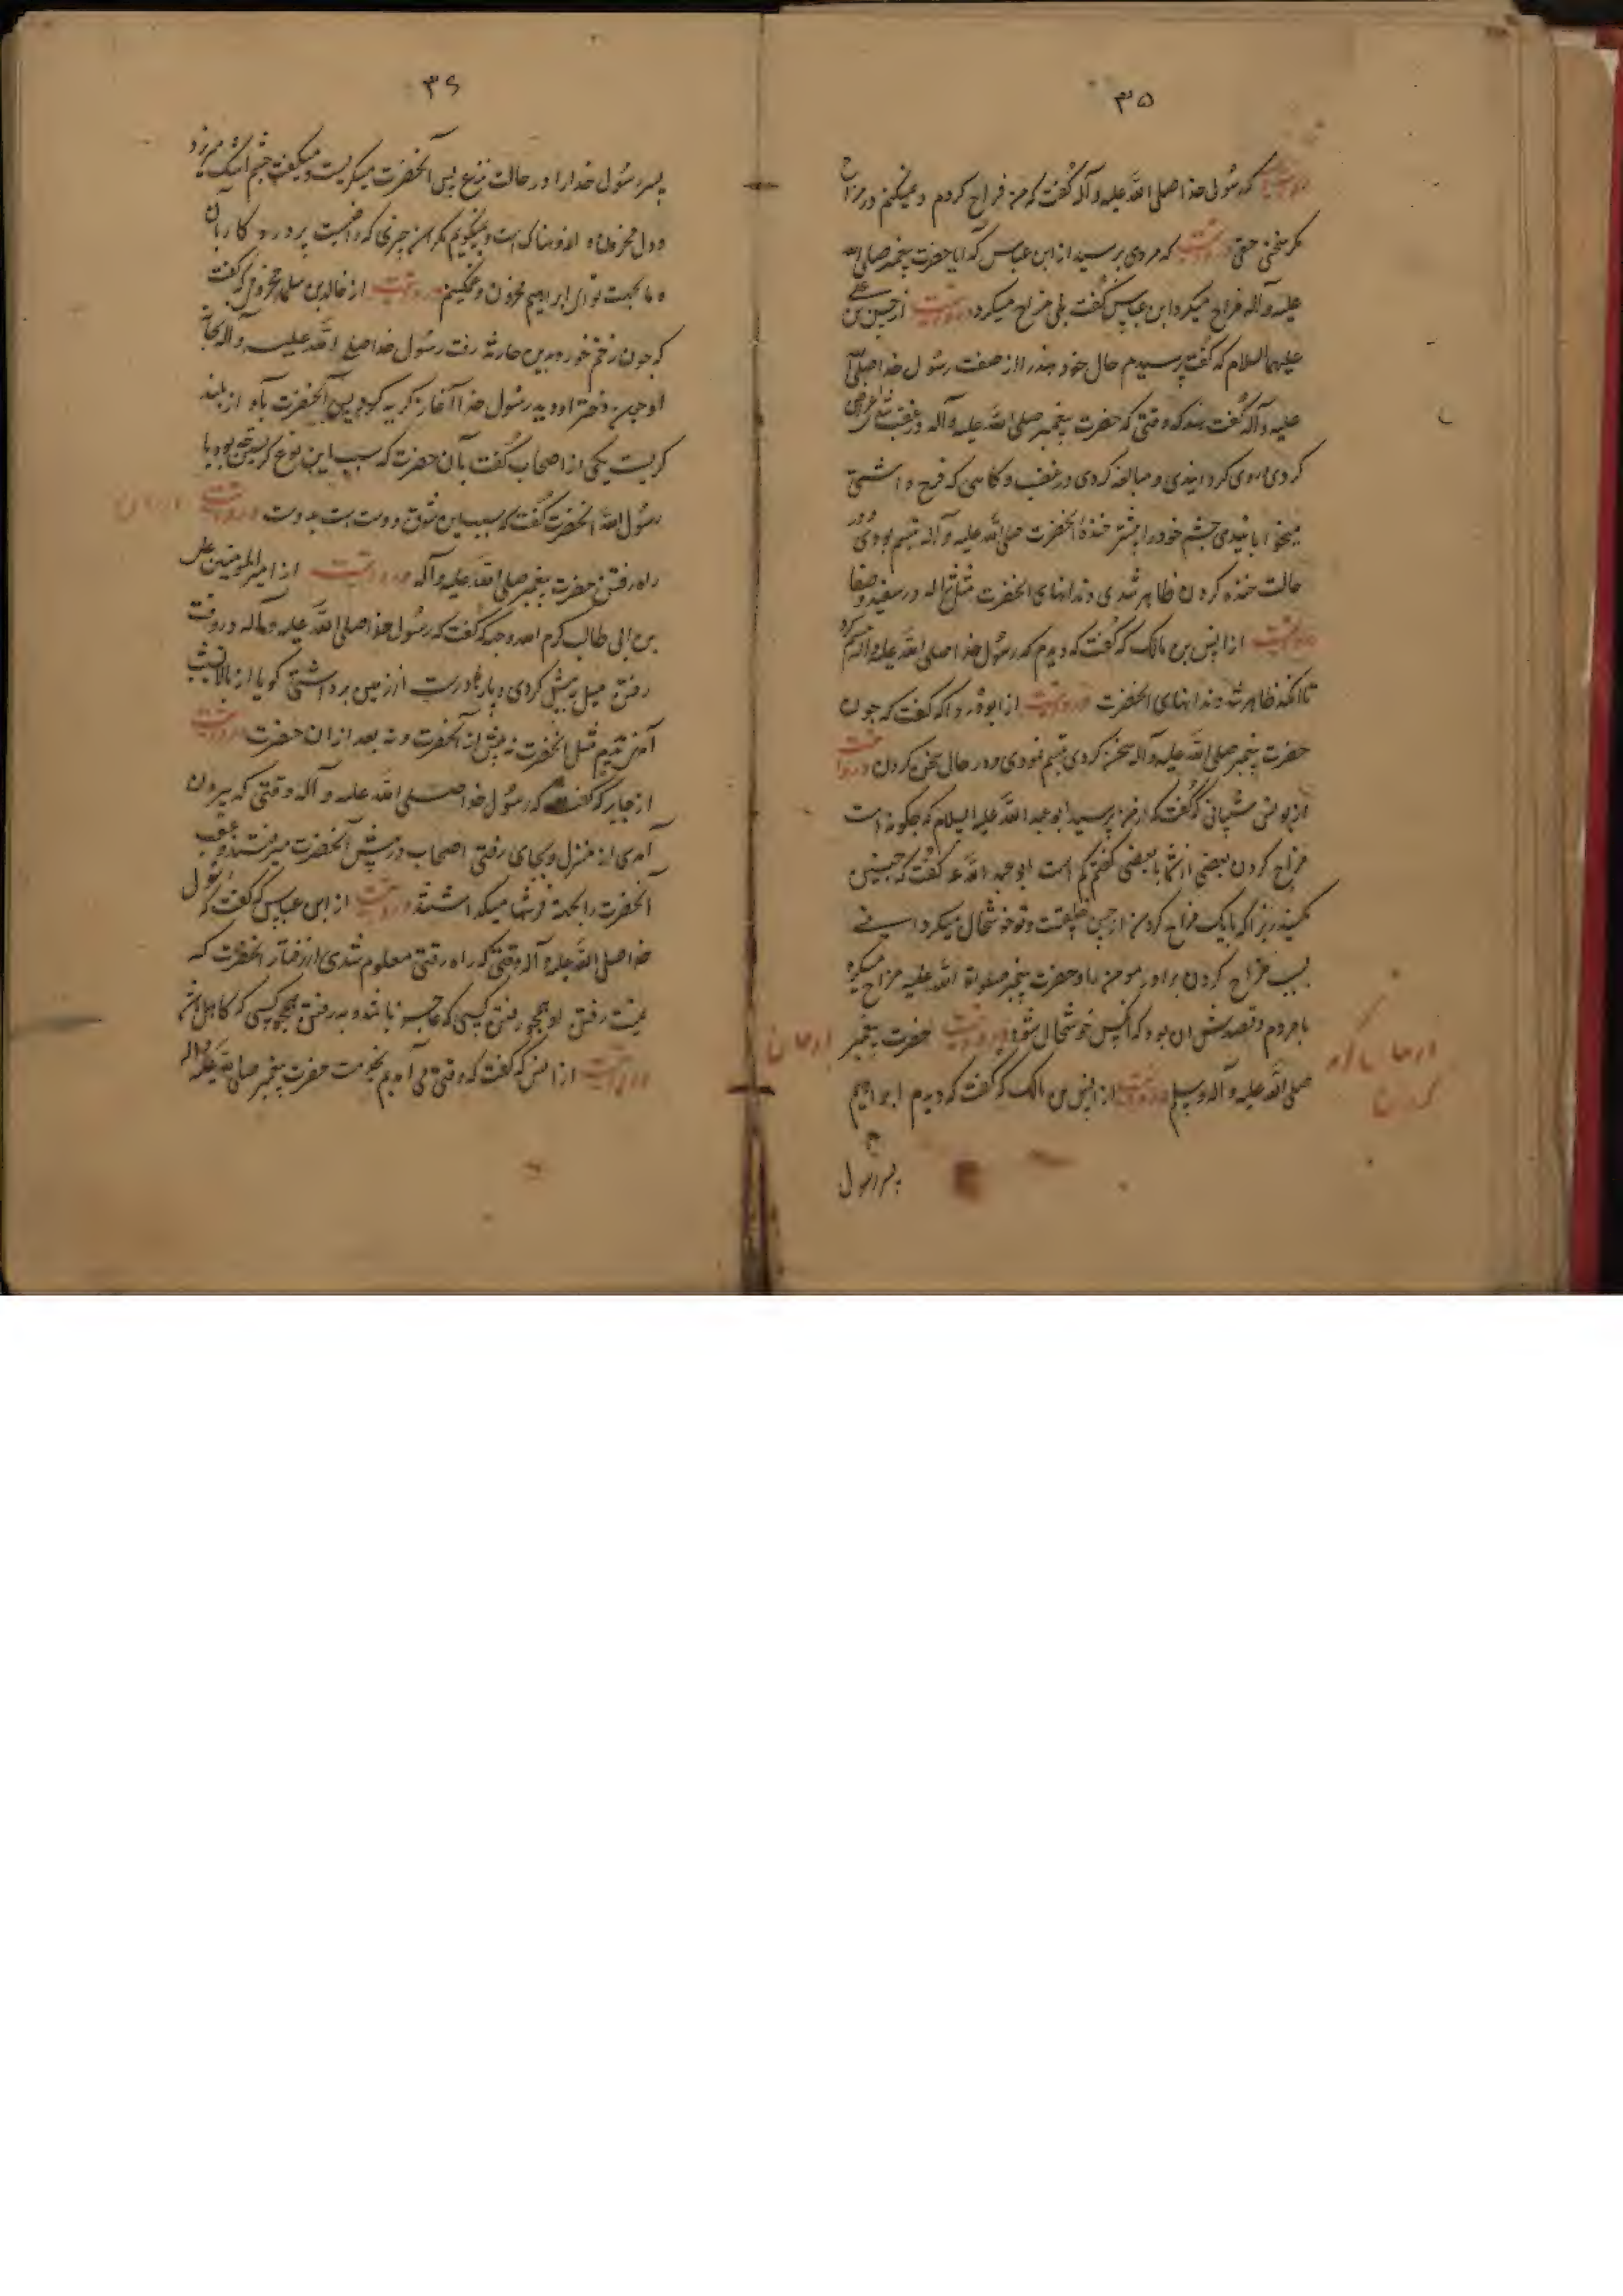 ۳۵
در روایتست که رسول خدا صلی الله علیه و آله گفت که من مزاح کردم و نمیکنم در مزاح
مکر سخنی حق در روایتست که مردی پرسید از ابن عباس که ایا حضرت پیغمبر صلی الله
علیه و آله مزاح میکرد ابن عباس گفت بلی مزاح میکرد در روایتست از حسین بن علی
علیهما السلام که گفت پرسیدم خال خود هند را از صفت رسول خدا صلی الله
علیه و آله گفت هند که وقتی که حضرت پیغمبر صلی الله علیه و آله در غضب
کردی روی کردانیدی و مبالغه کردی در غضب و کاهی که فرح داشتی
میخوابانیدی چشم خود را بیشتر خنده آنحضرت صلی الله علیه و آله تبسم بودی و در
حالت خنده کردن ظاهر شدی دندانهای آنحضرت مثل ژاله در سفیدی و صفا
در روایتست از انس بن مالک که گفت که دیدم که رسول خدا صلی الله علیه و آله تبسم کرد
تا آنکه ظاهر شد دندانهای آنحضرت در روایتست از ابو دردا که گفت که چون
حضرت پیغمبر صلی الله علیه و آله سخن کردی تبسم نمودی در حال سخن کردن در روایتست
از یونس شیبانی که گفت که از من پرسید ابو عبد الله علیه السلام که چکونه است
مزاح کردن بعضی از شما با بعضی گفتم کم است ابو عبد الله ع گفت که چنین
مکنید زیرا که بایک مزاح کردن از حسن خلقست و تو خوشحال میکردانی
بسبب مزاح کردن برادر مومن را و حضرت پیغمبر صلواة الله علیه مزاح میکرد
بامردم و قصدش ان بود که انکس خوشحال شود در روایتست حضرت پیغمبر
صلی الله علیه و آله و سلم در روایتست از انس بن مالک که گفت که دیدم ابراهیم
پسر رسول
۳۶
پسر رسول خدا را در حالت نزع پس آنحضرت میکریست و میکفت چشم اشک میریزد
و دل محزون و اندوهناک است و نمیکویم مکر ان چیزی که رضیست پروردکار بان
و ما بجهت تو ای ابراهیم محزون و غمکینیم در روایتست از خالد بن سلمه مخزومی که گفت
که چون زخم خورد زید بن حارثه رفت رسول خدا صلی الله علیه و آله بخانه
او چون دختر او دید رسول خدا آغاز کریه کرد پس آنحضرت بآواز بلند
کریست یکی از اصحاب گفت بآن حضرت که سبب این نوع کریستن چه بود یا
رسول الله آنحضرت گفت که سبب این شوق دوست است بدوست در روایتست
راه رفتن حضرت پیغمبر صلی الله علیه و آله در روایتست از امیرالمومنین علی
بن ابی طالب کرم الله وجهه که گفت که رسول خدا صلی الله علیه و آله در وقت
رفتن میل به پیش کردی و پا را درست از زمین برداشتی کویا از بالا به نشیب
آمدی ندیدم مثل آنحضرت نه پیش از آنحضرت و نه بعد از ان حضرت در روایتست
از جابر که گفت که رسول خدا صلی الله علیه و آله وقتی که بیرون
آمدی از منزل و بجای رفتی اصحاب در پیش آنحضرت میرفتند و عقب
آنحضرت را بجهة فرشتها میکذاشتند در روایتست از ابن عباس که گفت که رسول
خدا صلی الله علیه و آله وقتی که راه رفتی معلوم شدی از رفتار آنحضرت که
نیست رفتن او همچو رفتن کسی که عاجز باشد و نه رفتن همچو کسی که کاهل باشد
در روایتست از انس که گفت که وقتی می آمدیم بخدمت حضرت پیغمبر صلی الله علیه و آله